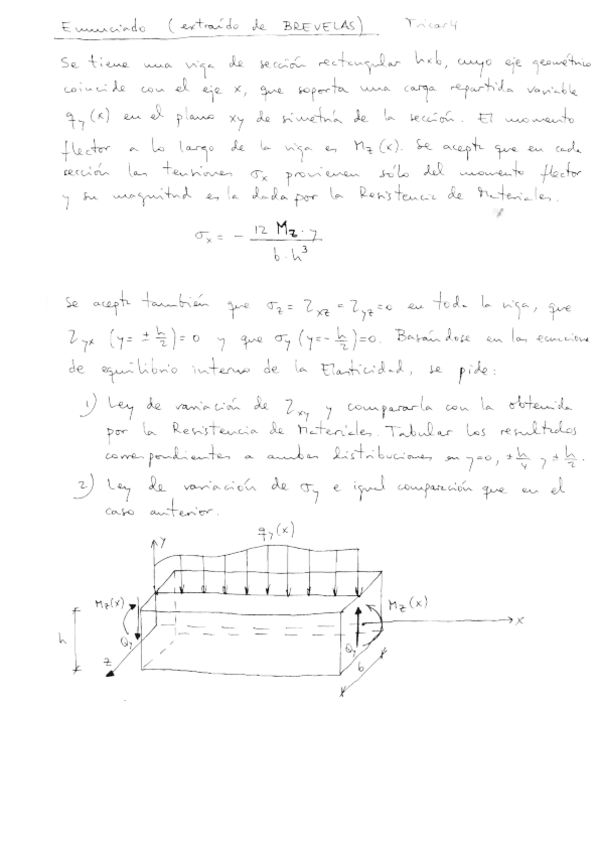 Enunciado (extraído de BREVELAS) Tricar4
Se tiene una viga de sección rectangular hxb, cuyo eje geométrico
coincide con el eje x, que soporta una carga repartida variable
q_y(x) en el plano xy de simetría de la sección. El momento
flector a lo largo de la viga es M_z(x). Se acepta que en cada
sección las tensiones σ_x provienen sólo del momento flector
y su magnitud es la dada por la Resistencia de Materiales.
σ_x = - 12 M_z · y / b · h³
Se acepta también que σ_z = τ_xz = τ_yz = 0 en toda la viga, que
τ_yx (y = ± h/2) = 0 y que σ_y (y = - h/2) = 0. Basándose en las ecuaciones
de equilibrio interno de la Elasticidad, se pide:
1) Ley de variación de τ_xy y compararla con la obtenida
por la Resistencia de Materiales. Tabular los resultados
correspondientes a ambas distribuciones en y=0, ± h/4 y ± h/2.
2) Ley de variación de σ_y e igual comparación que en el
caso anterior.
q_y(x)
y
M_z(x) M_z(x)
x
h
Q_y Q_y
z
b